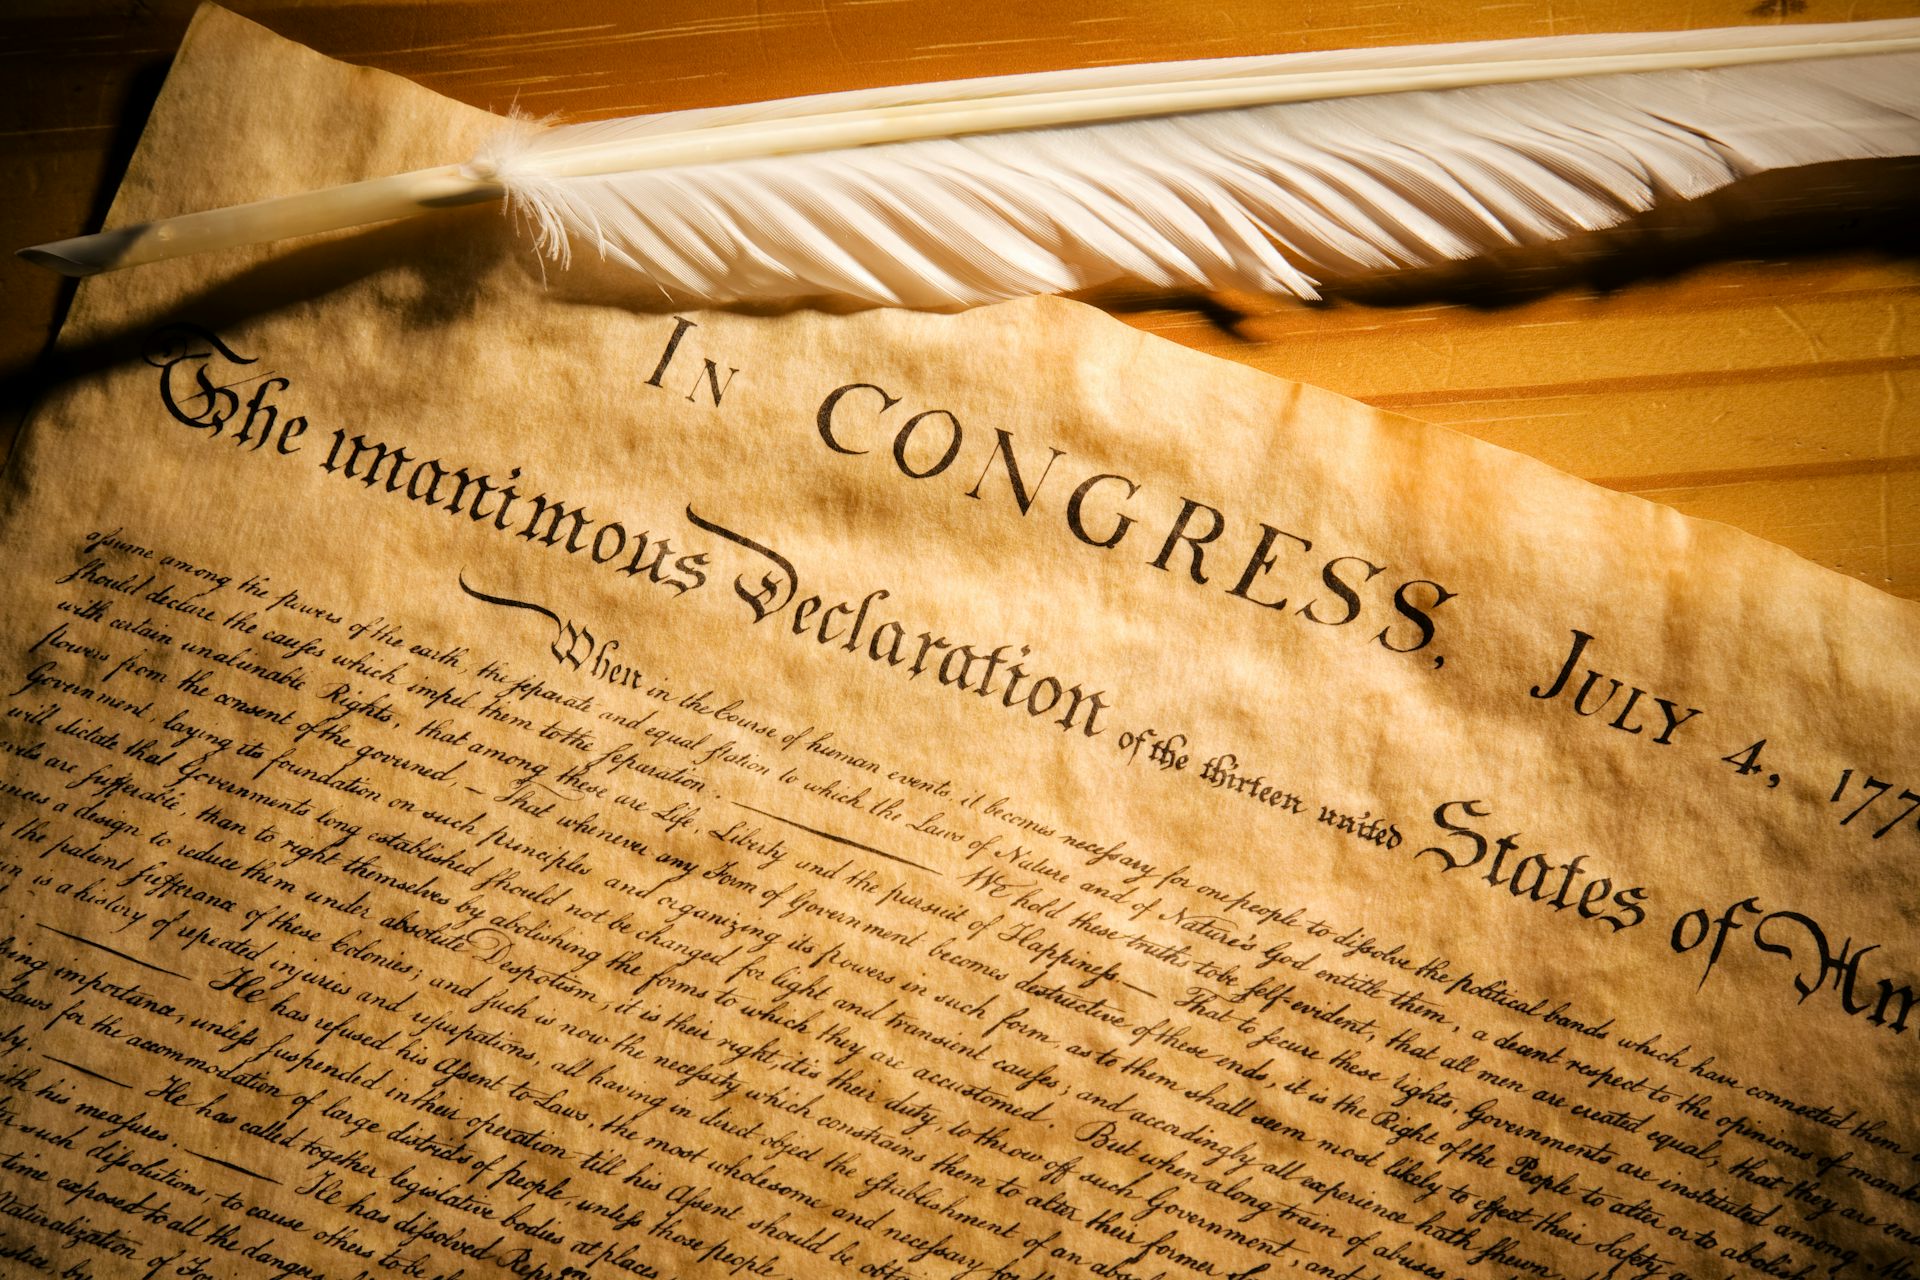 In CONGRESS, JULY 4, 177
The unanimous Declaration of the thirteen united States of Am
When in the Course of human events, it becomes necessary for one people to dissolve the political bands which have connected them
assume among the powers of the earth, the separate and equal station to which the Laws of Nature and of Nature's God entitle them, a decent respect to the opinions of manki
should declare the causes which impel them to the separation. — We hold these truths to be self-evident, that all men are created equal, that they are en
with certain unalienable Rights, that among these are Life, Liberty and the pursuit of Happiness.— That to secure these rights, Governments are instituted among
powers from the consent of the governed, — That whenever any Form of Government becomes destructive of these ends, it is the Right of the People to alter or to abolish
Government, laying its foundation on such principles and organizing its powers in such form, as to them shall seem most likely to effect their Safety
will dictate that Governments long established should not be changed for light and transient causes; and accordingly all experience hath shewn
evils are sufferable, than to right themselves by abolishing the forms to which they are accustomed. But when a long train of abuses
inces a design to reduce them under absolute Despotism, it is their right, it is their duty, to throw off such Government, and
the patient sufferance of these Colonies; and such is now the necessity which constrains them to alter their former
in is a history of repeated injuries and usurpations, all having in direct object the establishment of an abs
— He has refused his Assent to Laws, the most wholesome and necessary for
sing importance, unless suspended in their operation till his Assent should be obta
Laws for the accommodation of large districts of people, unless those people
ly. — He has called together legislative bodies at places
ith his measures. — He has dissolved Repr
such dissolutions, to cause others to be
time exposed to all the dangers
Naturalization of For
ustice, by